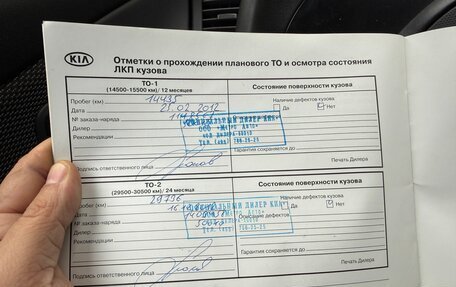 KIA
Отметки о прохождении планового ТО и осмотра состояния
ЛКП кузова
ТО-1
(14500-15500 км)/ 12 месяцев
Состояние поверхности кузова
Пробег (км) 14435
Наличие дефектов кузова
Дата 21.02.2012
Да Нет
№ заказа-наряда
ОФИЦИАЛЬНЫЙ ДИЛЕР КИА
Дилер
ООО
Рекомендации
Гарантия сохраняется до
Подпись ответственного лица
Печать Дилера
ТО-2
(29500-30500 км)/ 24 месяца
Состояние поверхности кузова
Пробег (км) 29736
Наличие дефектов кузова
Дата
Да Нет
№ заказа-наряда
ДИЛЕР КИА
Дилер
Описание дефектов
Рекомендации
Гарантия сохраняется до
Подпись ответственного лица
Печать Дилера